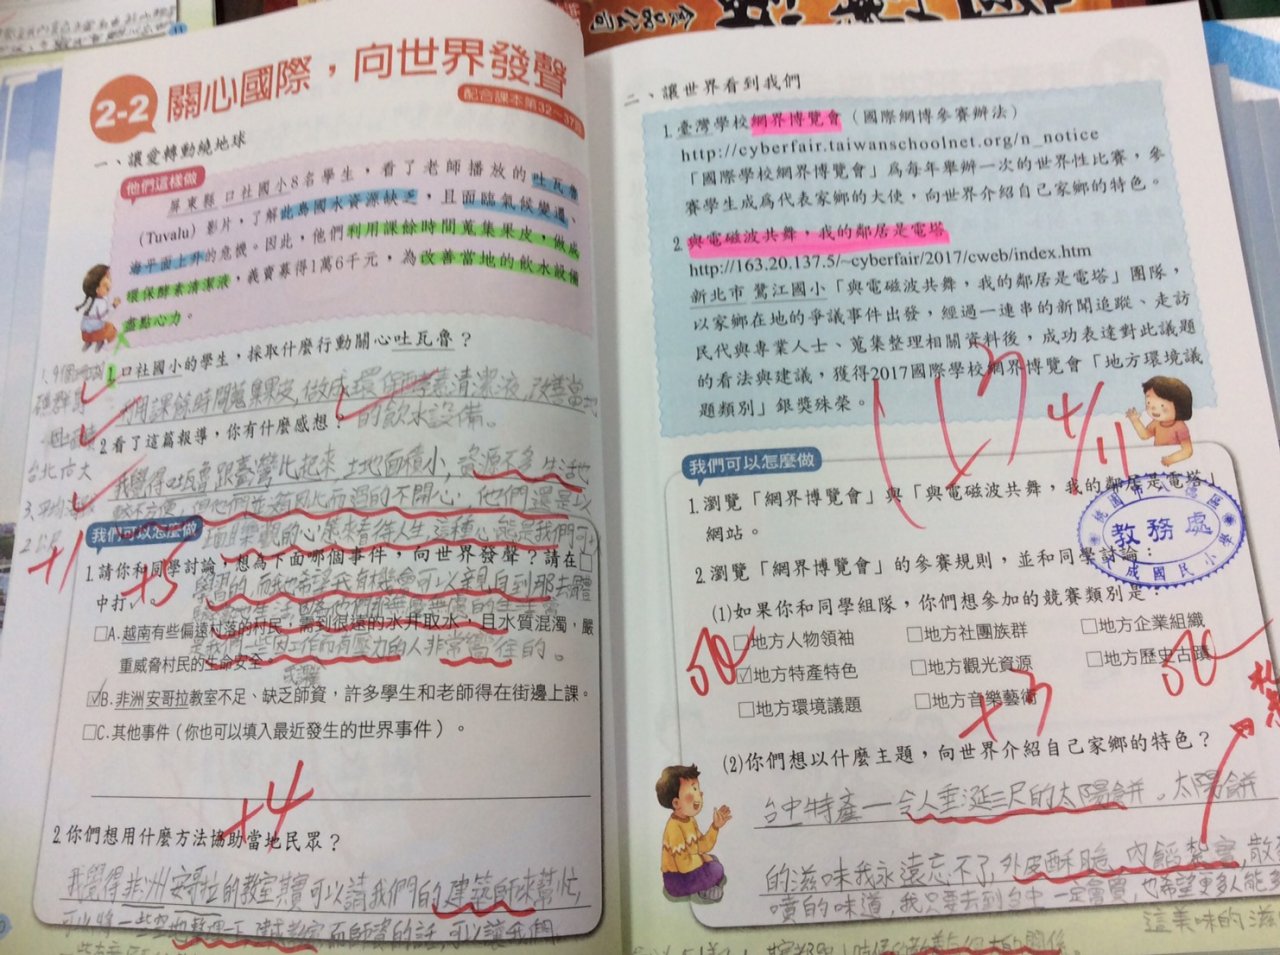 2-2 關心國際，向世界發聲
配合課本第32～37頁
一、讓愛轉動繞地球
他們這樣做
屏東縣 口社國小8名學生，看了老師播放的吐瓦魯
（Tuvalu）影片，了解此島國水資源缺乏，且面臨氣候變遷、
海平面上升的危機。因此，他們利用課餘時間蒐集果皮，做成
環保酵素清潔液，義賣募得1萬6千元，為改善當地的飲水設備
盡點心力。
1.口社國小的學生，採取什麼行動關心吐瓦魯？
利用課餘時間蒐集果皮，做成環保酵素清潔液，改善當地
的飲水設備。
2.看了這篇報導，你有什麼感想？
我覺得吐瓦魯跟臺灣比起來，土地面積小，資源不多，生活也
較不方便，但他們並沒有因此而過的不開心，他們還是以
樂觀的心態來看待人生，這種心態是我們可
學習的，而我也希望我有機會可以親自到那去體
+1
+3
我們可以怎麼做
1.請你和同學討論，想為下面哪個事件，向世界發聲？請在□
中打ˇ。
□A.越南有些偏遠村落的村民，需到很遠的水井取水，且水質混濁，嚴
重威脅村民的生命安全。
☑B.非洲安哥拉教室不足、缺乏師資，許多學生和老師得在街邊上課。
□C.其他事件（你也可以填入最近發生的世界事件）。
+4
2.你們想用什麼方法協助當地民眾？
我覺得非洲安哥拉的教室其實可以請我們的建築師來幫忙，
可以將一些空地整理一下，建成教室，而師資的話，可以讓我們
二、讓世界看到我們
1.臺灣學校網界博覽會（國際網博參賽辦法）
http://cyberfair.taiwanschoolnet.org/n_notice
「國際學校網界博覽會」為每年舉辦一次的世界性比賽，參
賽學生成為代表家鄉的大使，向世界介紹自己家鄉的特色。
2.與電磁波共舞，我的鄰居是電塔
http://163.20.137.5/~cyberfair/2017/cweb/index.htm
新北市 鷺江國小「與電磁波共舞，我的鄰居是電塔」團隊，
以家鄉在地的爭議事件出發，經過一連串的新聞追蹤、走訪
民代與專業人士、蒐集整理相關資料後，成功表達對此議題
的看法與建議，獲得2017國際學校網界博覽會「地方環境議
題類別」銀獎殊榮。
4/11
我們可以怎麼做
1.瀏覽「網界博覽會」與「與電磁波共舞，我的鄰居是電塔」
網站。
教務處
2.瀏覽「網界博覽會」的參賽規則，並和同學討論：
(1)如果你和同學組隊，你們想參加的競賽類別是？
□地方人物領袖 □地方社團族群 □地方企業組織
☑地方特產特色 □地方觀光資源 □地方歷史古蹟
□地方環境議題 □地方音樂藝術
+3
(2)你們想以什麼主題，向世界介紹自己家鄉的特色？
台中特產—令人垂涎三尺的太陽餅。太陽餅
的滋味我永遠忘不了，外皮酥脆，內餡紮實，散
噴的味道，我只要去到台中一定會買，也希望更多人能多
這美味的滋